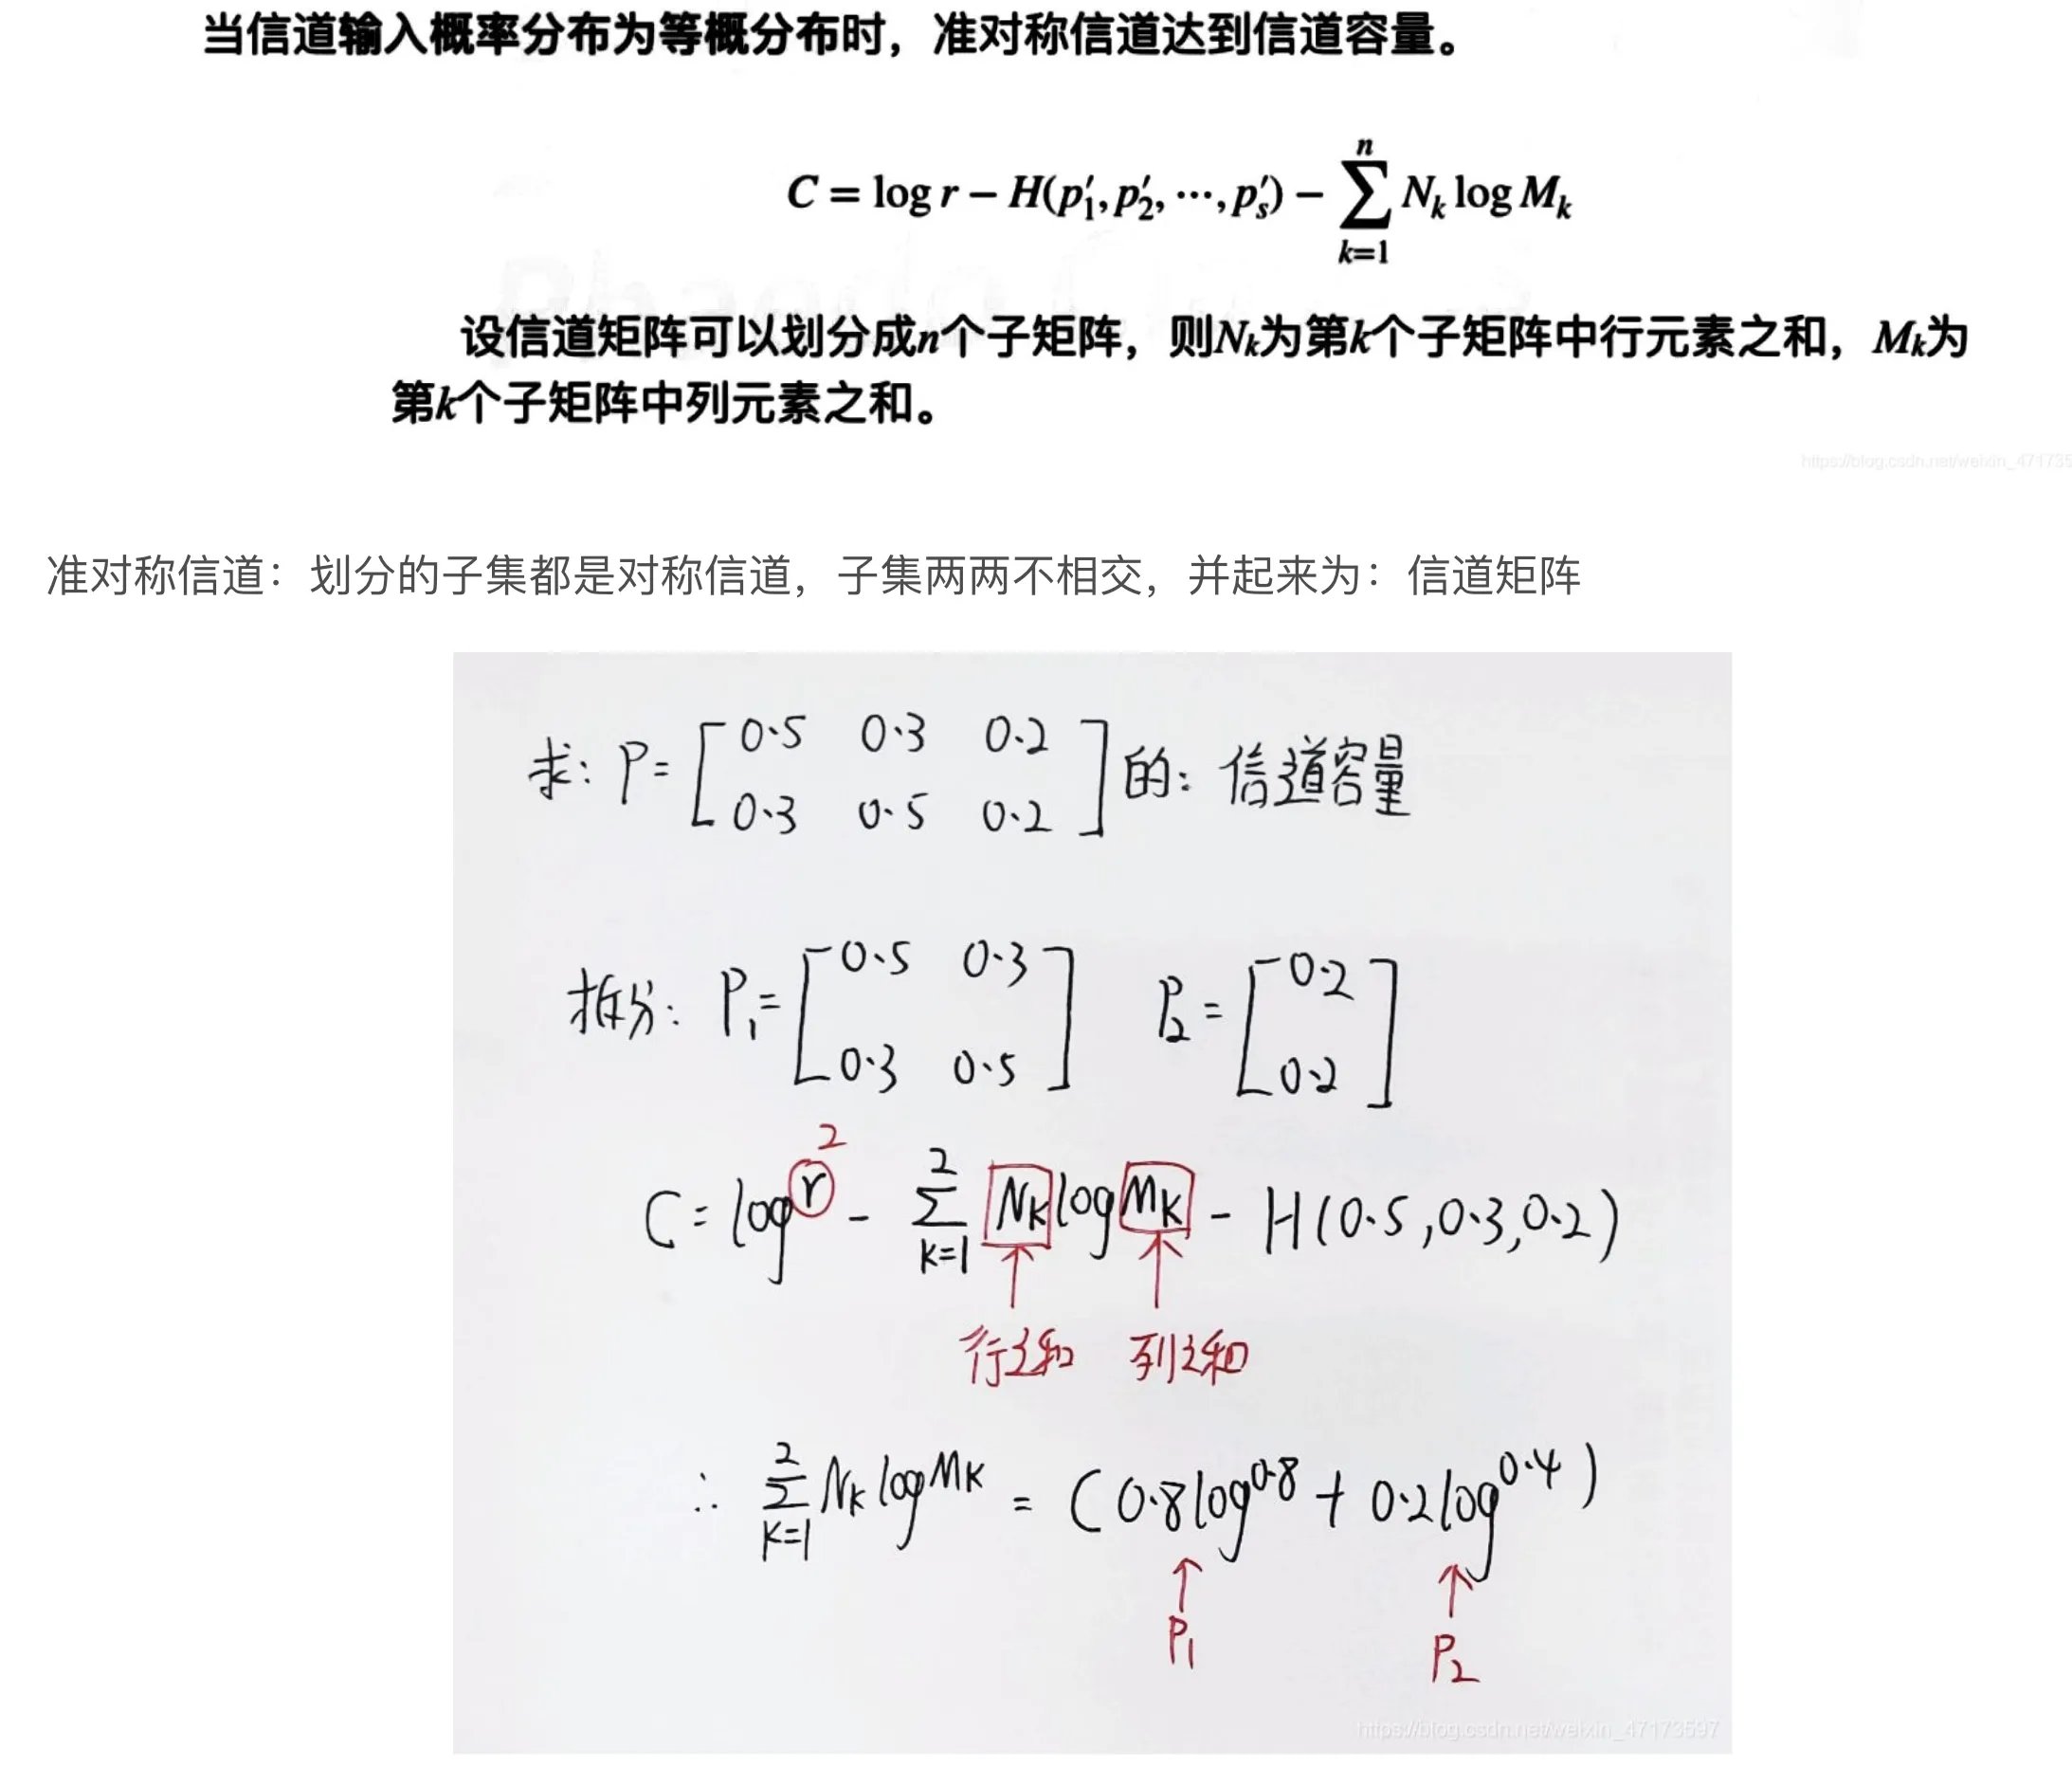 当信道输入概率分布为等概分布时，准对称信道达到信道容量。
C = log r − H(p′₁, p′₂, ⋯, p′ₛ) − ∑ₖ₌₁ⁿ Nₖ log Mₖ
设信道矩阵可以划分成n个子矩阵，则Nₖ为第k个子矩阵中行元素之和，Mₖ为
第k个子矩阵中列元素之和。
https://blog.csdn.net/weixin_471735
准对称信道：划分的子集都是对称信道，子集两两不相交，并起来为：信道矩阵
求: P= [0.5 0.3 0.2
0.3 0.5 0.2] 的: 信道容量
拆分: P₁= [0.5 0.3 P₂= [0.2
0.3 0.5] 0.2]
2
C = log r − ∑ₖ₌₁² Nₖ log Mₖ − H(0.5,0.3,0.2)
行之和 列之和
∴ ∑ₖ₌₁² Nₖ log Mₖ = (0.8log0.8 + 0.2log0.4)
P₁ P₂
https://blog.csdn.net/weixin_47173597